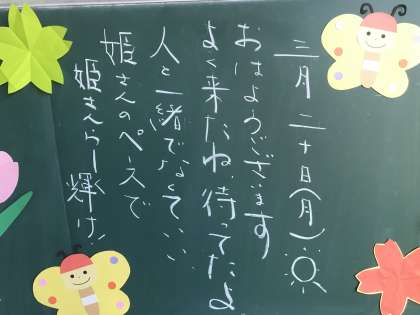 三月二十日(月)
おはようございます
よく来たね、待ってたよ
人と一緒でなくていい
姫さんのペースで
姫さんらしく輝け